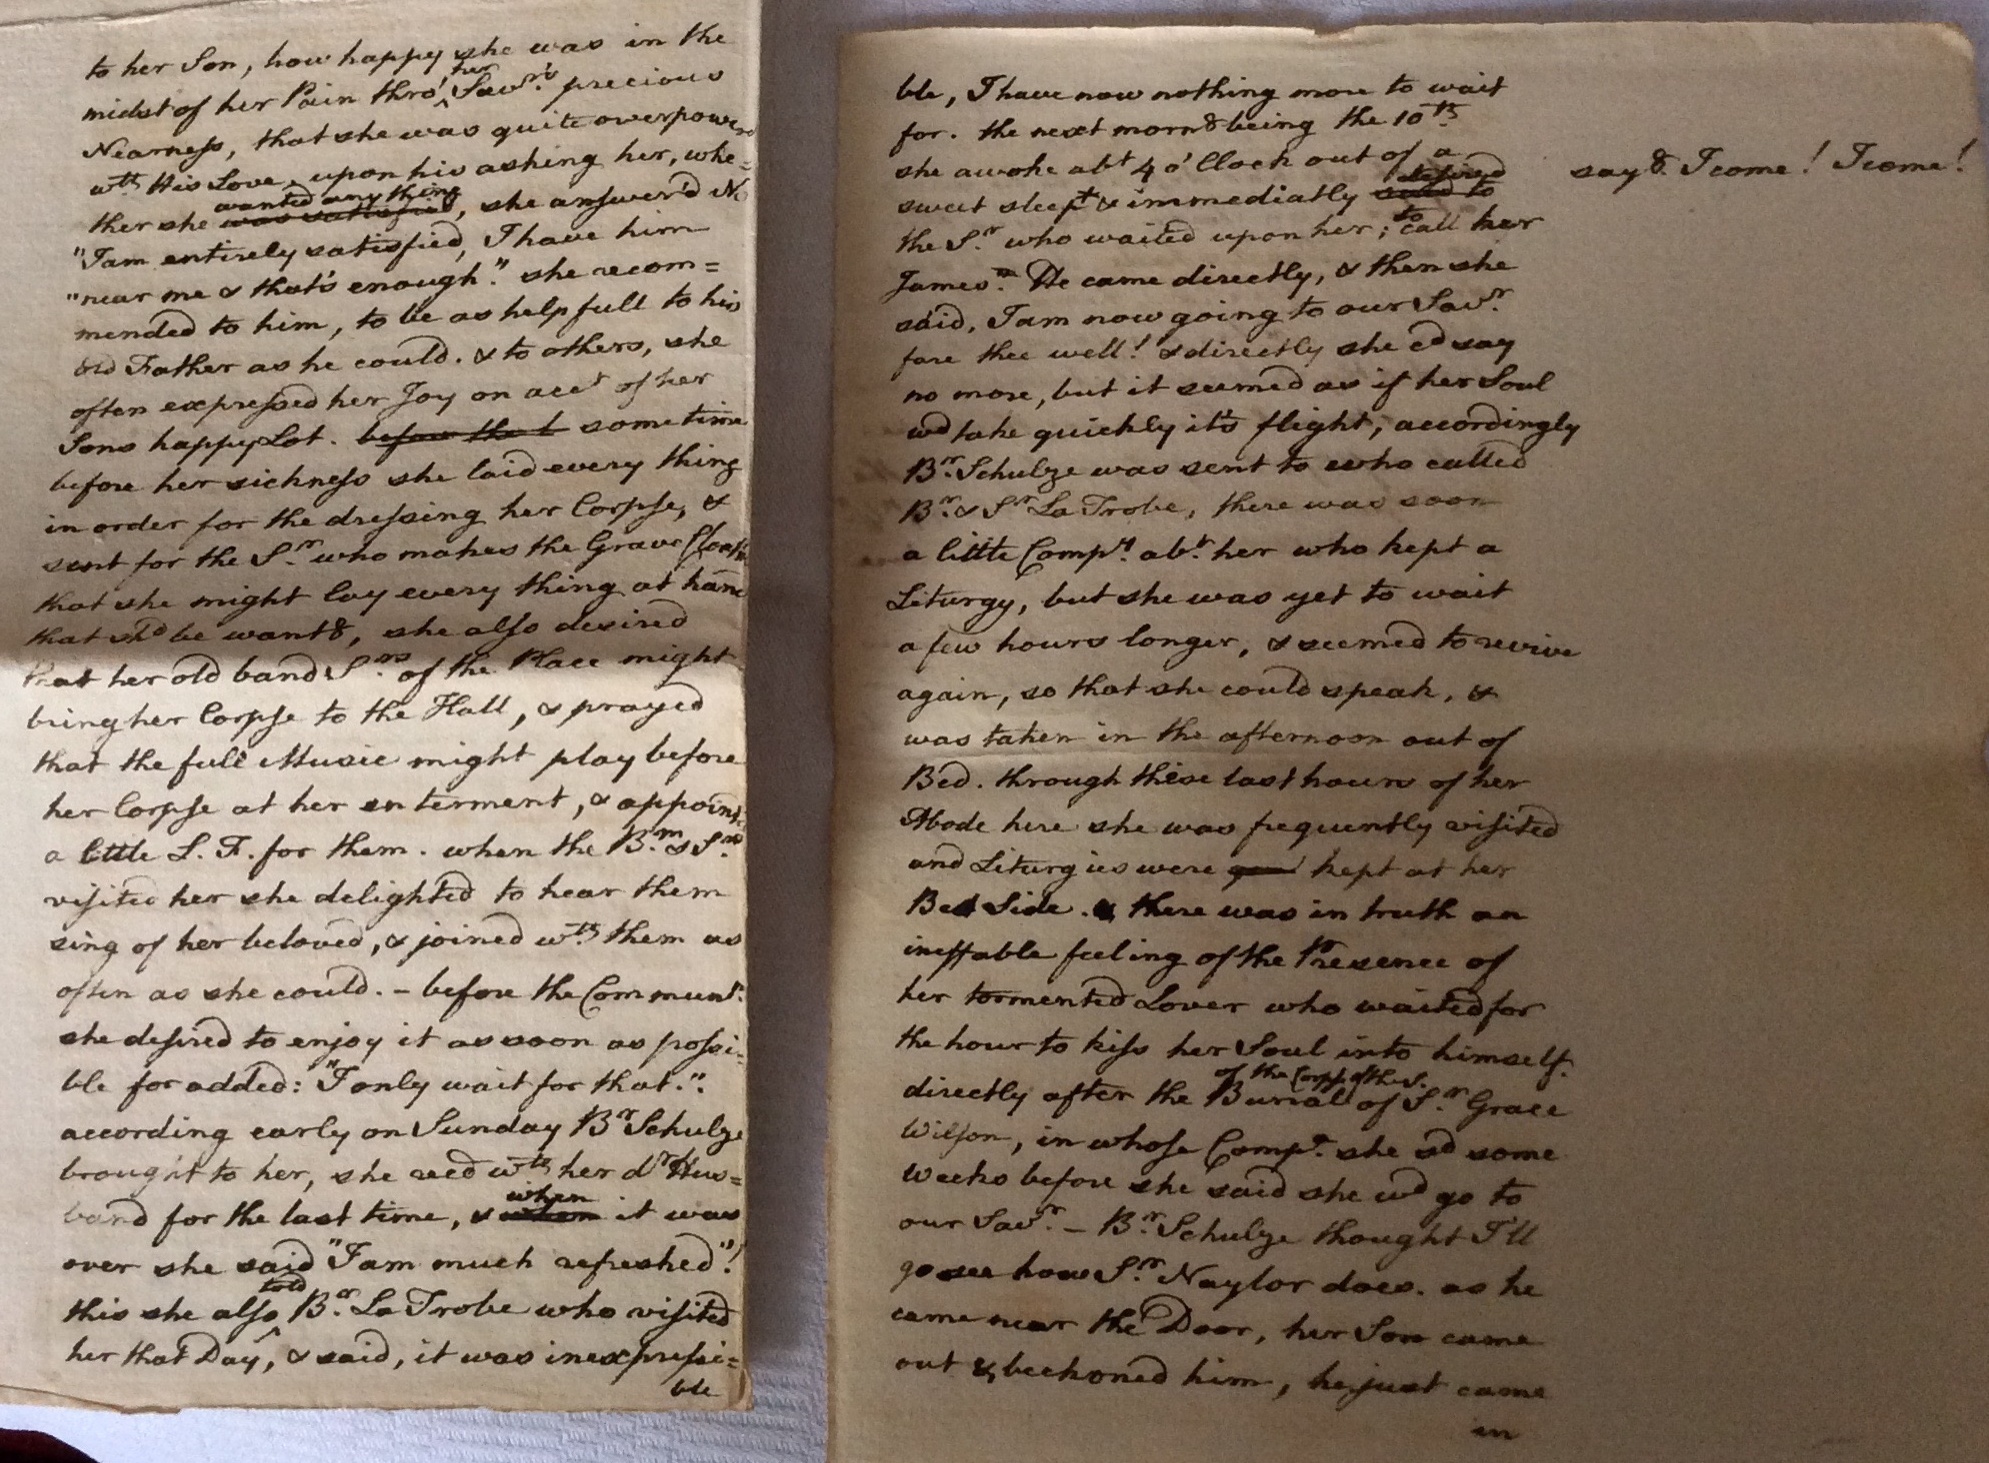 to her Son, how happy she was in the
midst of her Pain thro' her Savr's precious
Nearness, that she was quite overpower
wth His Love, upon his asking her, whe=
ther she was satisfied wanted any thing, she answer'd No
"I am entirely satisfied, I have him
"near me & that's enough." she recom=
mended to him, to be as helpfull to his
old Father as he could. & to others, she
often expressed her Joy on acct of her
Sons happy Lot. before the t sometime
before her sickness she laid every thing
in order for the dressing her Corpse, &
sent for the Sr. who makes the Grave Cloath
that she might lay every thing at hand
that shd be want&, she also desired
that her old band Srs. of the Place might
bring her Corpse to the Hall, & prayed
that the full Music might play before
her Corpse at her enterment, & appoint
a little L. F. for them. when the Brn. & Srs.
visited her she delighted to hear them
sing of her beloved, & joined wth them as
often as she could. - before the Communn.
she desired to enjoy it as soon as possi=
ble for added: "I only wait for that."
according early on Sunday Br Schulze
brought it to her, she recd wth her dr Hus=
band for the last time, & when when it was
over she said "I am much refreshed"!
this she also told Br. La Trobe who visited
her that Day, & said, it was inexpressi=
ble
ble, I have now nothing more to wait
for. the next morn& being the 10th
she awoke abt 4 o'Clock out of a
say&. I come! I come!
sweet sleep & immediatly said to desired
the Sr. who waited upon her; to call her
James. He came directly, & then she
said, I am now going to our Savr.
fare thee well! & directly she cd say
no more, but it seemed as if her Soul
wd take quickly it's flight, accordingly
Br. Schulze was sent to who called
Br. & Sr La Trobe, there was soon
a little Compy. abt. her who kept a
Liturgy, but she was yet to wait
a few hours longer, & seemed to revive
again, so that she could speak, &
was taken in the afternoon out of
Bed. through these last hours of her
Abode here she was frequently visited
and Liturgies were kept at her
Bed Side. & there was in truth an
ineffable feeling of the Presence of
her tormented Lover who waited for
the hour to kiss her Soul into himself.
directly after the Burial of the Corpse of the S. of Sr. Grace
Wilson, in whose Compy. she sd some
weeks before she said she wd go to
our Savr. - Br. Schulze thought I'll
go see how Sr. Naylor does. as he
came near the Door, her Son came
out & beckoned him, he just came
in